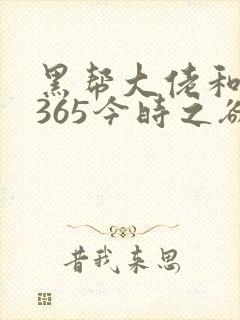 黑帮大佬和
365今时之欲
昔我来思